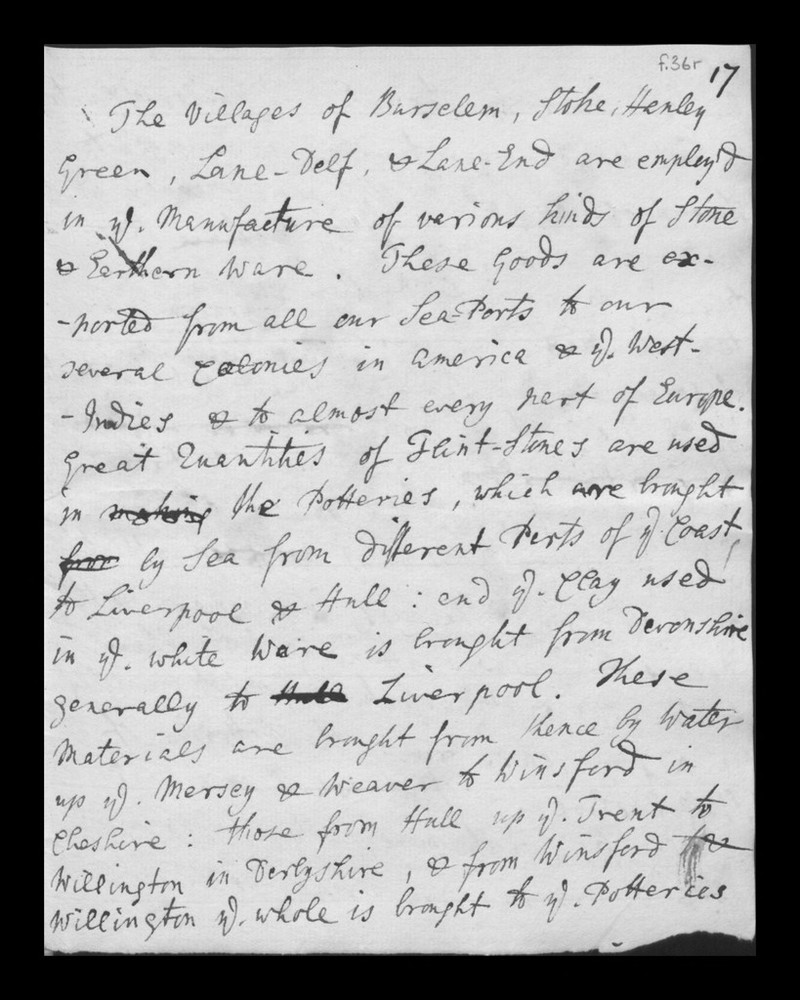 f.36r 17
The Villages of Burselem, Stoke, Hanley
Green, Lane-Delf, & Lane-End are employ'd
in ye. Manufacture of various kinds of Stone
& Earthern Ware. These Goods are ex-
-ported from all our Sea-Ports to our
several Colonies in America & ye. West-
-Indies & to almost every part of Europe.
Great Quantities of Flint-Stones are used
in making the Potteries, which are brought
from by Sea from different Parts of ye. Coast
to Liverpool & Hull: and ye. Clay used
in ye. white Ware is brought from Devonshire
generally to Hull Liverpool. These
Materials are brought from thence by Water
up ye. Mersey & Weaver to Winsford in
Cheshire: those from Hull up ye. Trent to
Willington in Derbyshire, & from Winsford &
Willington ye. whole is brought to ye. Potteries